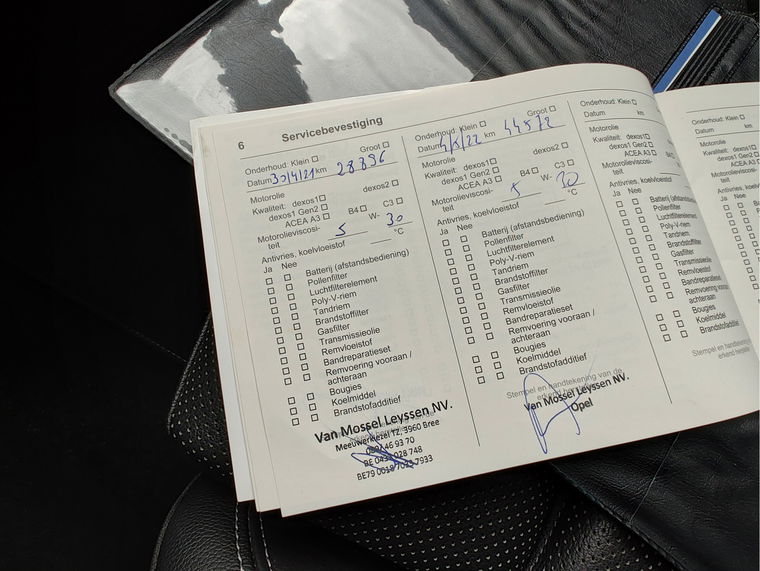 6 Servicebevestiging
Onderhoud: Klein Groot
Datum 30/4/21 km 28896
Motorolie
Kwaliteit: dexos1 dexos2
dexos1 Gen2
ACEA A3 B4 C3
Motorolieviscosi-
teit 5 W- 30
Antivries, koelvloeistof °C
Ja Nee
Batterij (afstandsbediening)
Pollenfilter
Luchtfilterelement
Poly-V-riem
Tandriem
Brandstoffilter
Gasfilter
Transmissieolie
Remvloeistof
Bandreparatieset
Remvoering vooraan /
achteraan
Bougies
Koelmiddel
Brandstofadditief
Van Mossel Leyssen NV.
Meeuwerkiezel 12, 3960 Bree
Onderhoud: Klein Groot
Datum 4/5/22 km 44572
Motorolie
Kwaliteit: dexos1 dexos2
dexos1 Gen2
ACEA A3 B4 C3
Motorolieviscosi-
teit 5 W- 30
Antivries, koelvloeistof °C
Ja Nee
Batterij (afstandsbediening)
Pollenfilter
Luchtfilterelement
Poly-V-riem
Tandriem
Brandstoffilter
Gasfilter
Transmissieolie
Remvloeistof
Bandreparatieset
Remvoering vooraan /
achteraan
Bougies
Koelmiddel
Brandstofadditief
Stempel en handtekening van de
Van Mossel Leyssen NV.
Opel
Onderhoud: Klein
Datum km
Motorolie
Kwaliteit: dexos1
dexos1 Gen2
ACEA A3
Motorolieviscosi-
teit
Antivries, koelvloeistof
Ja Nee
Batterij
Pollenfilter
Luchtfilterelement
Poly-V-riem
Tandriem
Brandstoffilter
Gasfilter
Transmissieolie
Remvloeistof
Remvoering
achteraan
Bougies
Koelmiddel
Brandstofadditief
Stempel en handtekening
Onderhoud: Klein
Datum km
Motorolie
Kwaliteit: dexos1
dexos1 Gen2
ACEA A3
teit
Antivries, koelvl
Ja Nee